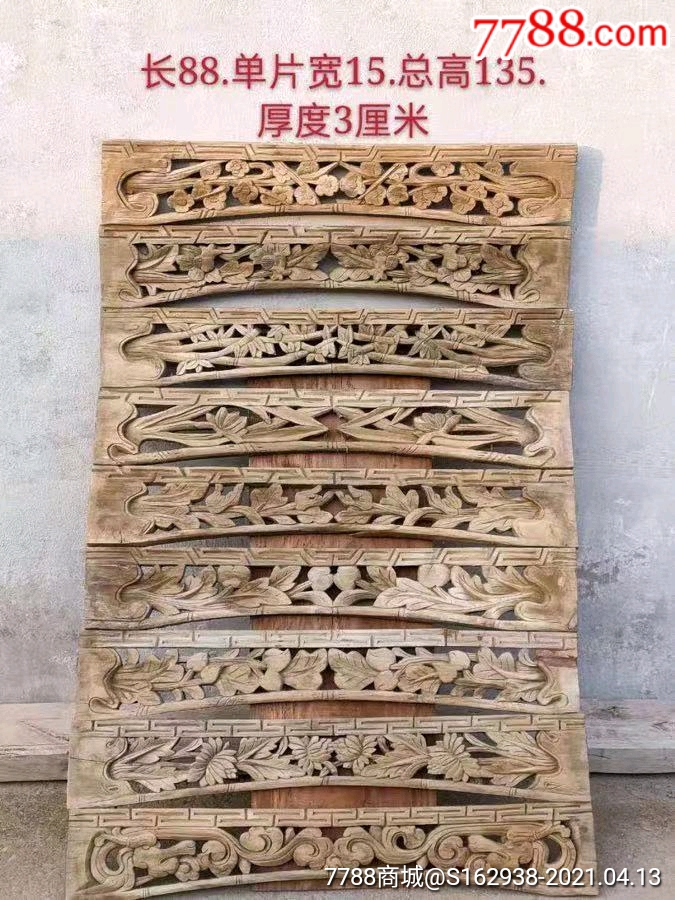 7788.com
长88.单片宽15.总高135.
厚度3厘米
7788商城@S162938-2021.04.13